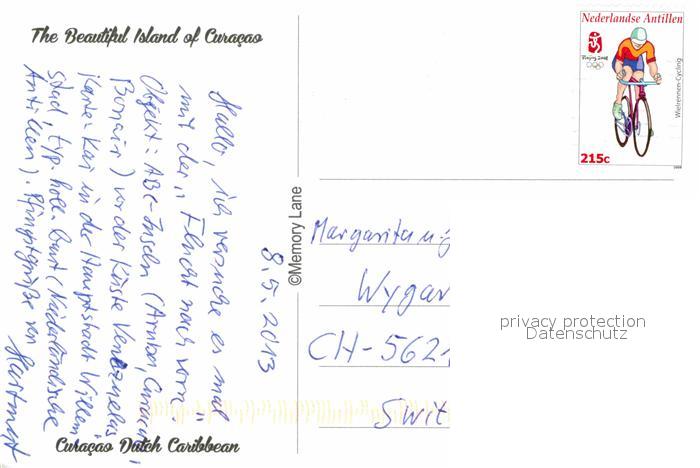 The Beautiful Island of Curaçao
Hallo, ich versuche es mal
mit der „Flucht nach vorn“.
Objekt: ABC-Inseln (Aruba, Curaçao,
Bonair) vor der Küste Venezuelas
Karte: Kai in der Hauptstadt Willem-
stad, typ. holl. Bunt (Niederländische
Antillen). Pfingstgrüße von
Hartmut
8.5.2013
Curaçao Dutch Caribbean
©Memory Lane
Nederlandse Antillen
Beijing 2008
Wielrennen-Cycling
215c
2008
Margarita u
Wygar
CH-562
Swit
privacy protection
Datenschutz